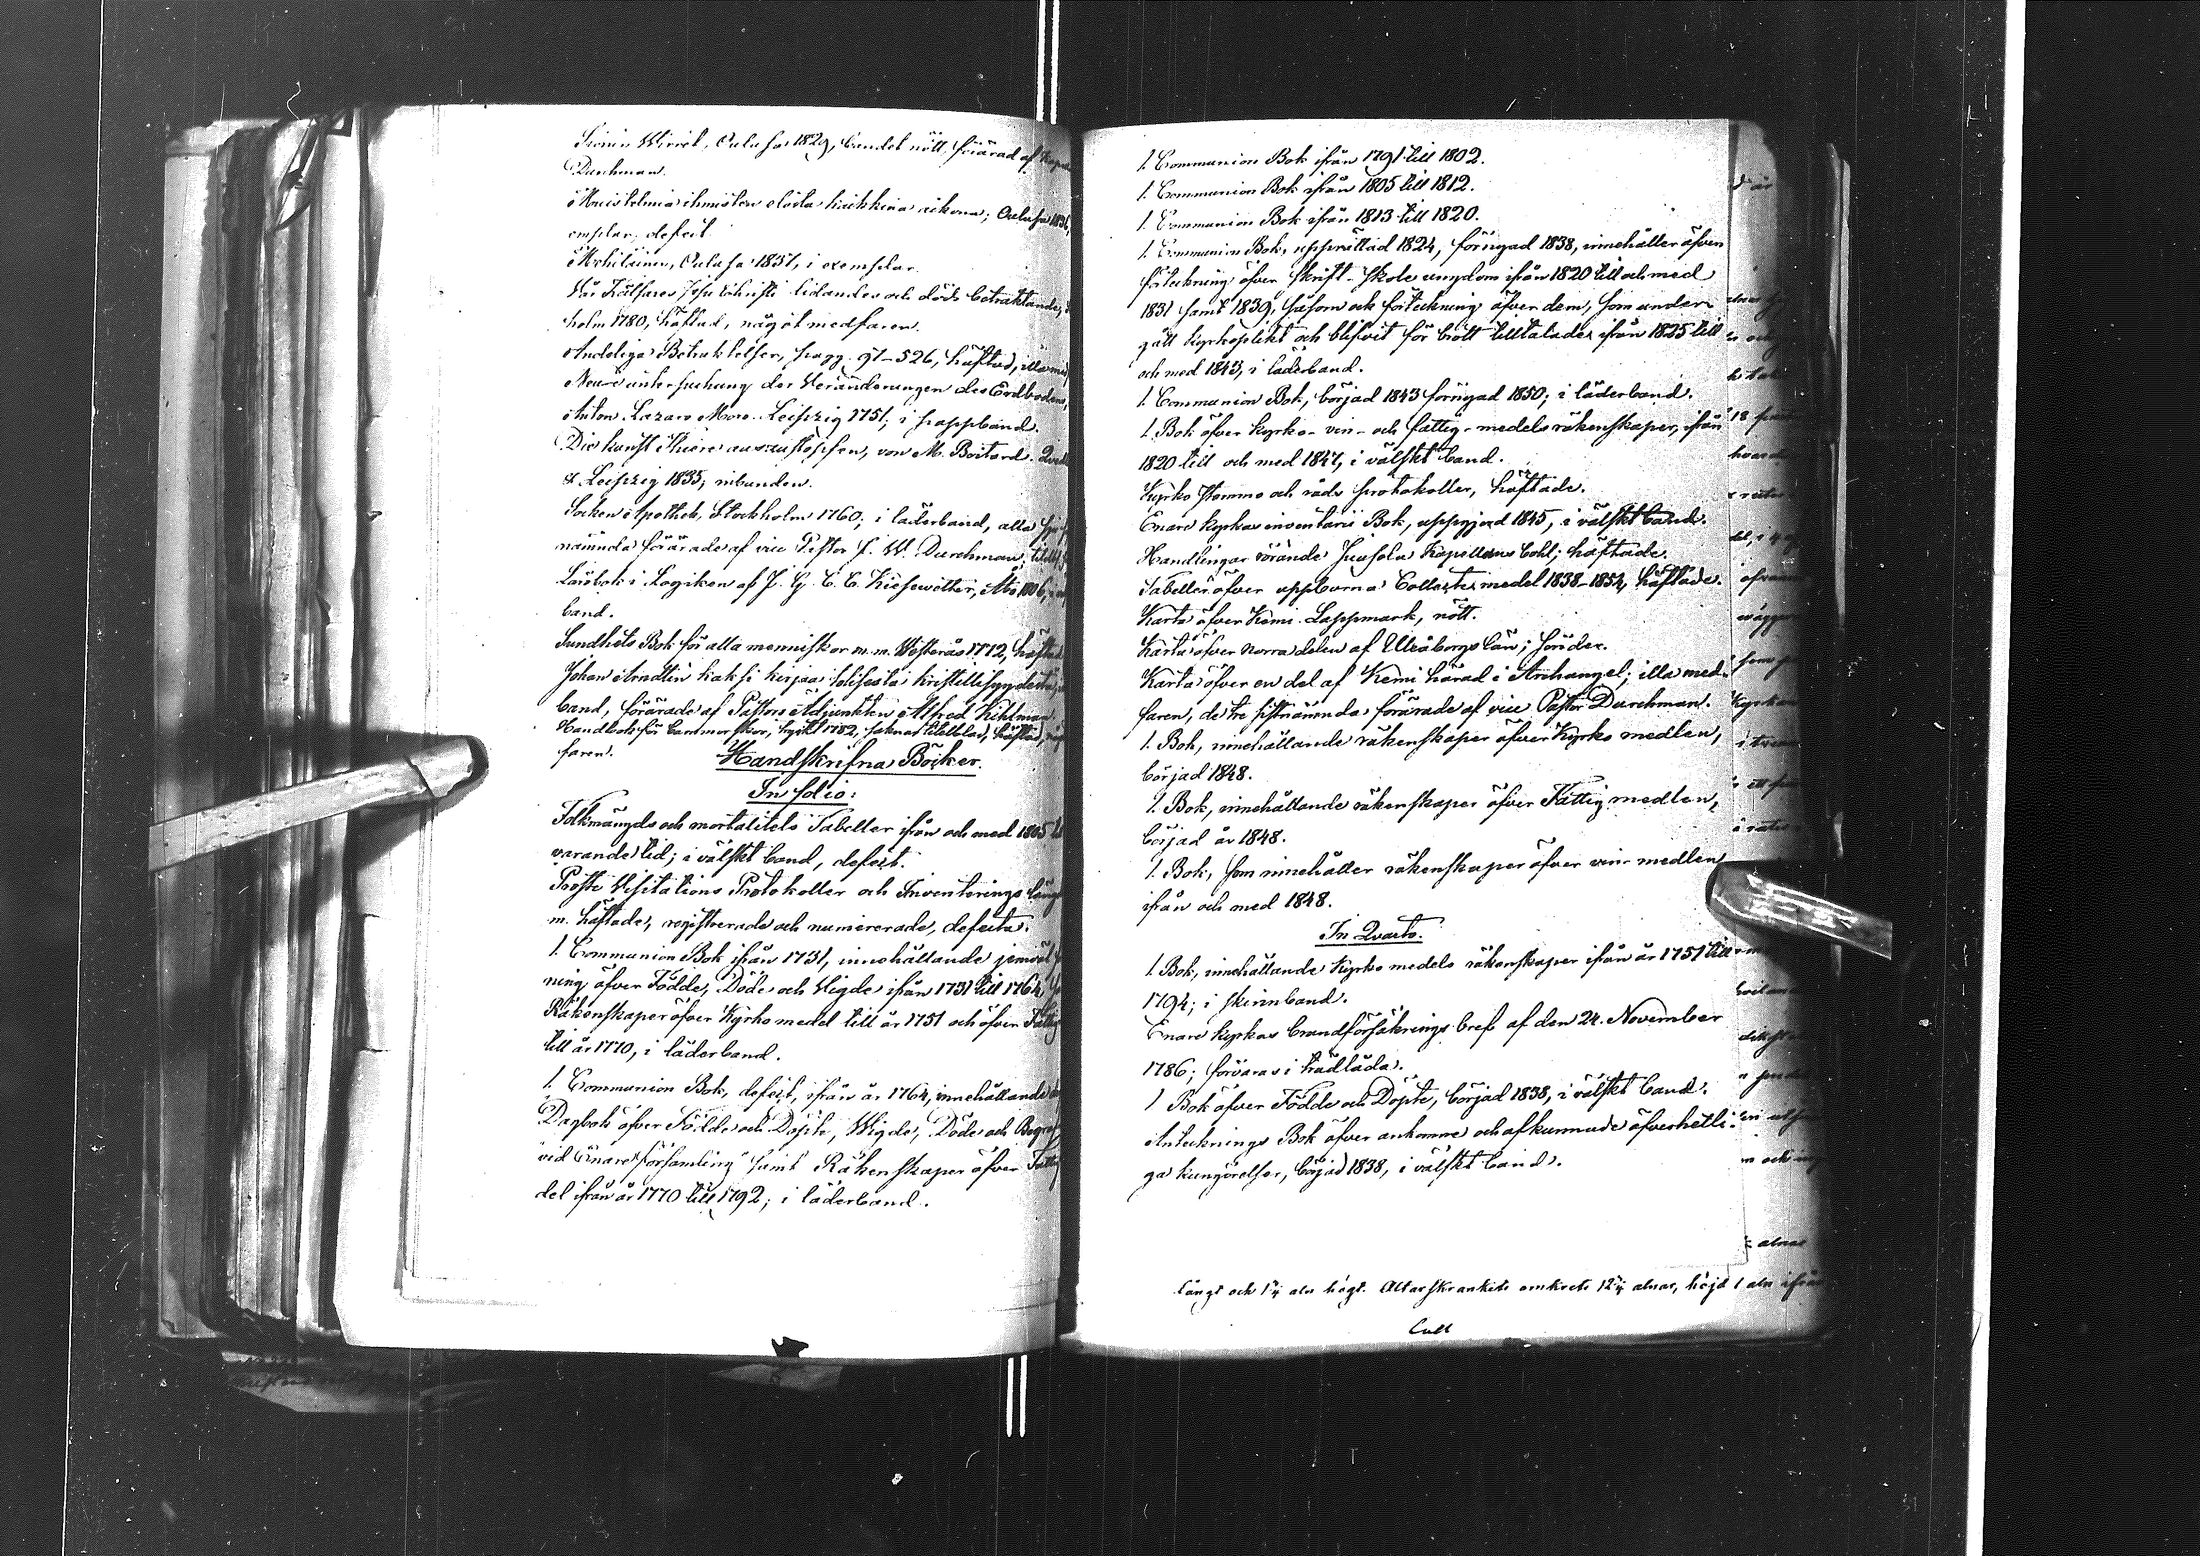 Sionin Wirret, Oulusa 1829, bandet nött, förärad af
Durchman.
Muistelmia ihmisten elosta kaikkina aikoina; Oulusa 1836,
emplar, defect.
Mehiläinen, Oulusa 1837, i exemplar.
Vår Frälsares Jesu Christi lidandes och döds betraktande,
holm 1780, häftad, något medfaren.
Andeliga Betraktelser, pagg. 91-526, häftad, illa
Neue untersuchung der Veränderungen des Erdbodens,
Anton Lazaro Moro. Leipzig 1751; i pappband.
Die kunst Thiere auszustopfen, von M. Boitard.
& Leipzig 1835; inbunden.
Socken Apothek, Stockholm 1760; i läderband, alla
nämnda förärade af vice Pastor J. W. Durchman.
Lärobok i Logiken af J. G. C. C. Kiesewetter, Åbo 1806,
band.
Sundhets Bok för alla menniskor m. m. Westerås 1772,
Johan Arndtin kaksi kirjaa Totisesta kristillisyydestä,
band, förärade af Pastors Adjunkten Alfred Kihlman.
Handbok för Barnmorskor, tryckt 1782, saknar titelblad, häftad,
faren.
Handskrifna Böcker.
In folio:
Folkmängds och mortalitets Tabeller ifrån och med 1805
varande tid; i välskt band, defect.
Prosts Visitations Protokoller och Inventerings
m. häftade, registrerade och numererade, defecta.
1. Communion Bok ifrån 1731, innehållande jemväl
ning öfver Födde, Döde och Vigde ifrån 1731 till 1764,
Räkenskaper öfver Kyrko medel till år 1751 och öfver
till år 1770, i läderband.
1. Communion Bok, defect, ifrån år 1764, innehållande
Dagbok öfver Födde och Döpte, Wigde, Döde och
vid Enare församling samt Räkenskaper öfver
del ifrån år 1770 till 1792; i läderband.
1. Communion Bok ifrån 1791 till 1802.
1. Communion Bok ifrån 1805 till 1812.
1. Communion Bok ifrån 1813 till 1820.
1. Communion Bok, upprättad 1824, förnyad 1838, innehåller äfven
förteckning öfver skrift-skole ungdom ifrån 1820 till och med
1831 samt 1839, såsom och förteckning öfver dem, som under-
gått kyrkoplikt och blifvit för brott tilltalade, ifrån 1825 till
och med 1843, i läderband.
1. Communion Bok, börjad 1843 förnyad 1850; i läderband.
1. Bok öfver kyrko- vin- och fattig-medels räkenskaper, ifrån
1820 till och med 1847, i välskt band.
Kyrko stämmo och råds protokoller, häftade.
Enare kyrkas inventarii Bok, uppgjord 1845, i välskt band.
Handlingar rörande Juusola Kapellans bohl; häftade.
Tabeller öfver uppburna Collect medel 1838-1854, häftade.
Karta öfver Kemi Lappmark, nött.
Karta öfver norra delen af Uleåborgs län; sönder.
Karta öfver en del af Kemi härad i Archangel; illa med-
faren, de tre sistnämnda förärade af vice Pastor Durchman.
1. Bok, innehållande räkenskaper öfver Kyrko medlen,
börjad 1848.
1. Bok, innehållande räkenskaper öfver Fattig medlen,
börjad år 1848.
1. Bok, som innehåller räkenskaper öfver vin medlen
ifrån och med 1848.
In Quarto.
1. Bok, innehållande Kyrko medels räkenskaper ifrån år 1751 till
1794; i skinnband.
Enare kyrkas brandförsäkrings bref af den 24. November
1786; förvaras i trädlåda.
1 Bok öfver Födde och Döpte, börjad 1838, i välskt band.
Antecknings Bok öfver ankomne och afkunnade öfverhetli-
ga kungörelser, börjad 1838, i välskt band.
långt och 1¼ aln högt. Altarskrankets omkrets 12¼ alnar, höjd 1 aln ifrån